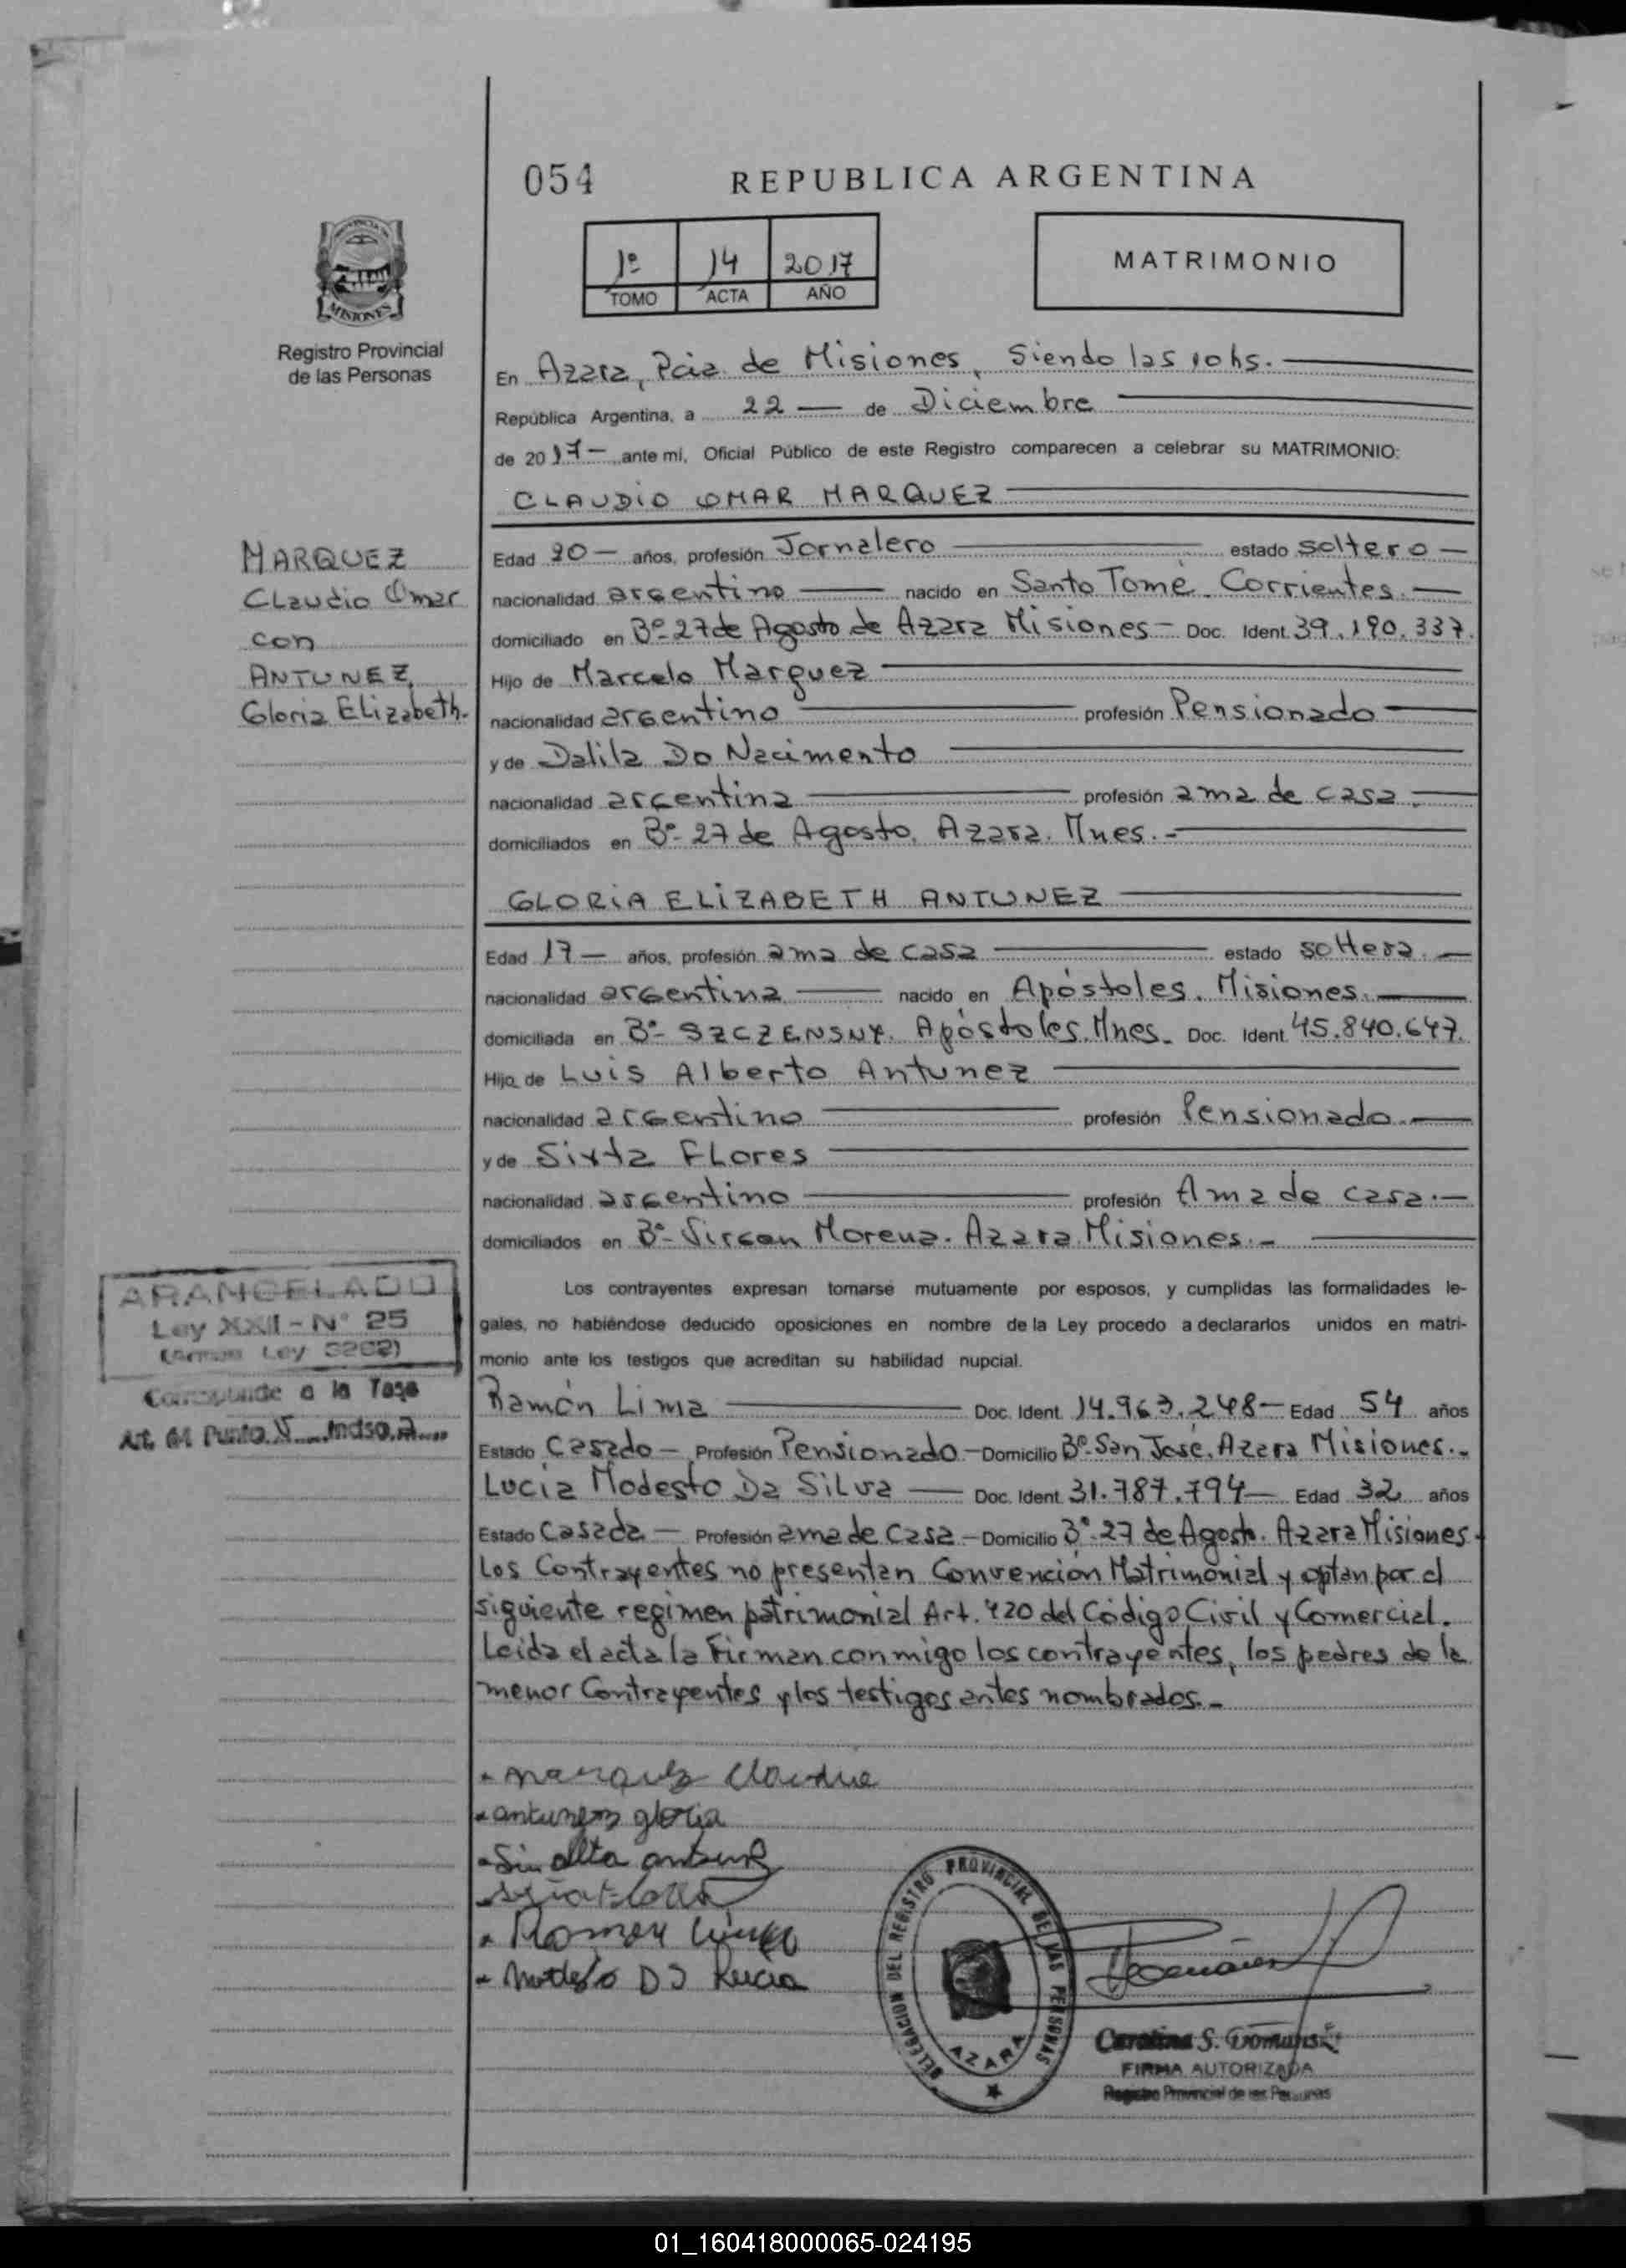 054
REPUBLICA ARGENTINA
1º 14 2017
TOMO ACTA AÑO
MATRIMONIO
PROVINCIA DE
MISIONES
Registro Provincial
de las Personas
En Azara, Pcia. de Misiones, Siendo las 10hs.
República Argentina, a 22 — de Diciembre
de 2017 — ante mi, Oficial Público de este Registro comparecen a celebrar su MATRIMONIO:
CLAUDIO OMAR MARQUEZ
MARQUEZ
Claudio Omar
con
ANTUNEZ,
Gloria Elizabeth.
Edad 20 — años, profesión Jornalero estado soltero —
nacionalidad argentino — nacido en Santo Tomé. Corrientes. —
domiciliado en Bº-27 de Agosto de Azara Misiones — Doc. Ident. 39.190.337.
Hijo de Marcelo Marquez
nacionalidad argentino profesión Pensionado
y de Dalila Do Nacimento
nacionalidad argentina profesión ama de casa.
domiciliados en Bº- 27 de Agosto. Azara. Mnes. -
GLORIA ELIZABETH ANTUNEZ
Edad 17 — años, profesión ama de casa estado soltera. —
nacionalidad argentina — nacido en Apóstoles. Misiones. —
domiciliada en Bº- SZCZENSNY. Apóstoles. Mnes. Doc. Ident. 45.840.647.
Hija de Luis Alberto Antunez
nacionalidad argentino profesión Pensionado. —
y de Sixta Flores
nacionalidad argentino profesión Ama de casa. —
domiciliados en Bº- Virgen Morena. Azara Misiones. -
Los contrayentes expresan tomarse mutuamente por esposos, y cumplidas las formalidades le-
gales, no habiéndose deducido oposiciones en nombre de la Ley procedo a declararlos unidos en matri-
monio ante los testigos que acreditan su habilidad nupcial.
ARANCELADO
Ley XXII - Nº 25
Ley 3262)
Corresponde a la Tasa
Art. Punto V Inciso a
Ramón Lima — Doc. Ident. 14.963.248 — Edad 54 años
Estado Casado — Profesión Pensionado — Domicilio Bº San José. Azara Misiones. -
Lucia Modesto Da Silva — Doc. Ident. 31.787.794 — Edad 32 años
Estado Casada — Profesión ama de casa — Domicilio Bº-27 de Agosto. Azara Misiones.
Los Contrayentes no presentan Convención Matrimonial y optan por el
siguiente regimen patrimonial Art. 420 del Código Civil y Comercial.
Leida el acta la Firman conmigo los contrayentes, los padres de la
menor Contrayentes y los testigos antes nombrados. -
Marquez Claudio
antunez gloria
Modesto DS Lucia
DELEGACION DEL REGISTRO PROVINCIAL DE LAS PERSONAS
AZARA
Carolina S. Domanski
FIRMA AUTORIZADA
Registro Provincial de las Personas
01_160418000065-024195